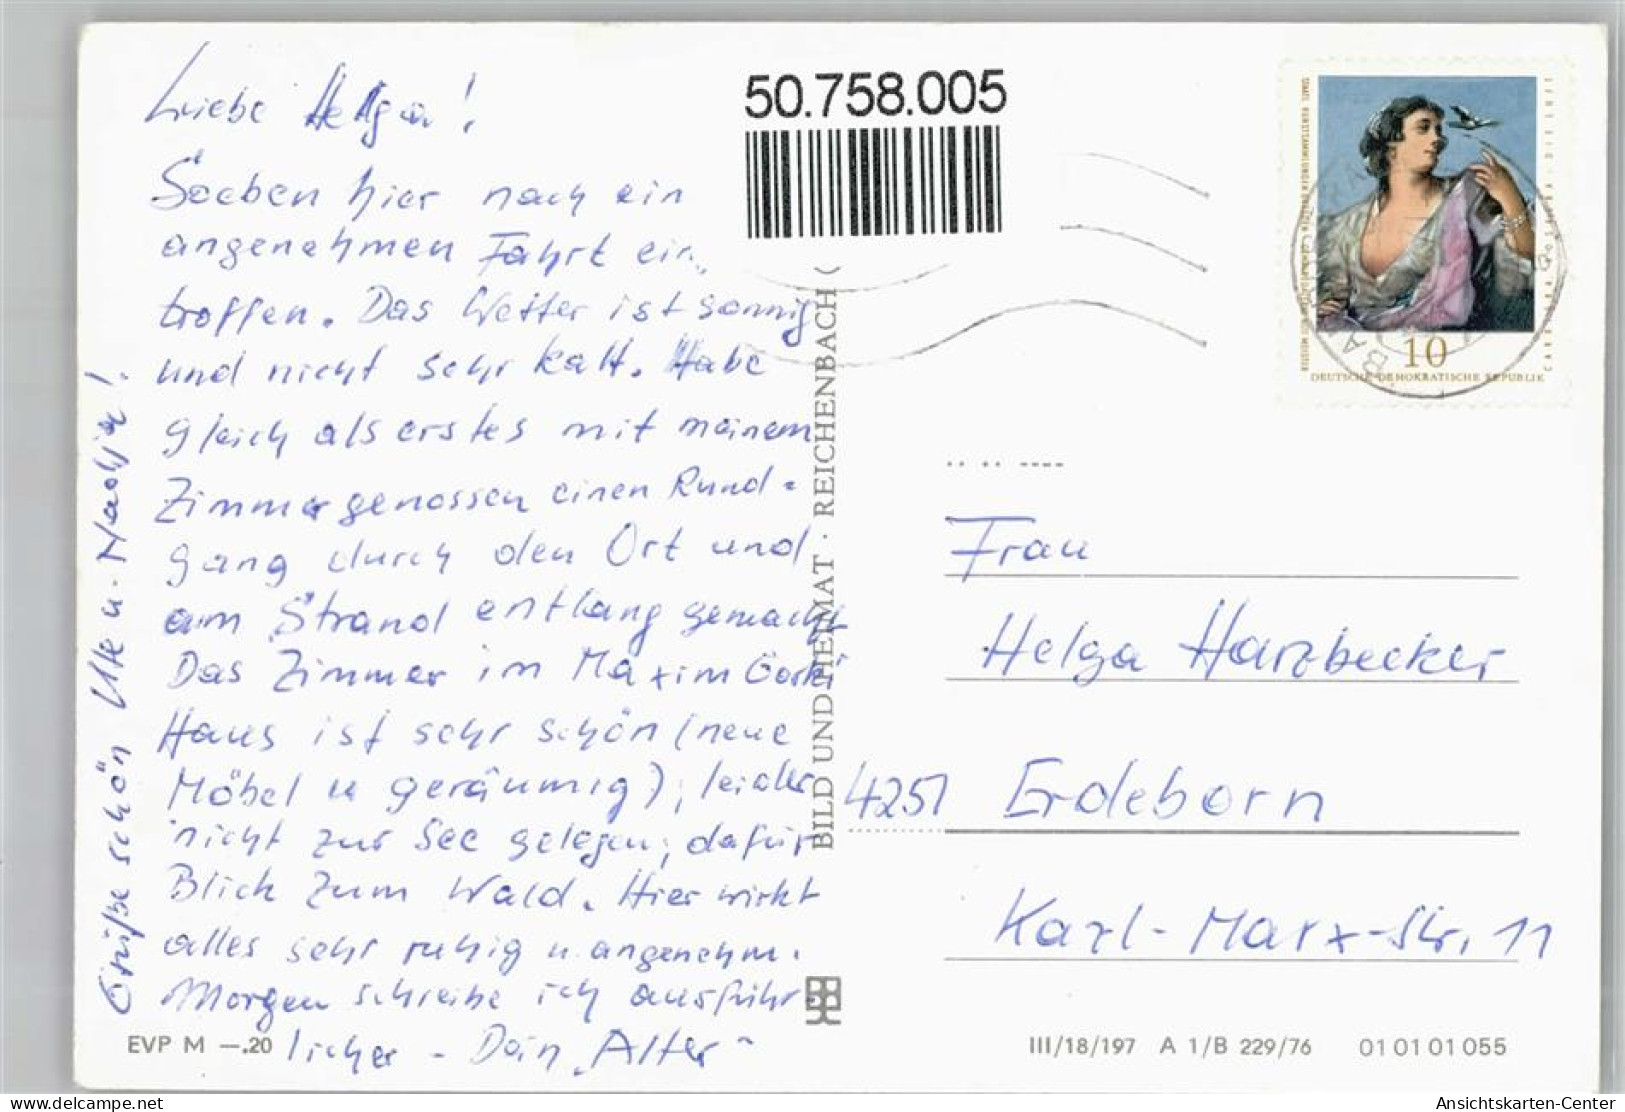 Liebe Helga!
Soeben hier nach ein
angenehmen Fahrt ein
troffen. Das Wetter ist sonnig
und nicht sehr kalt. Habe
gleich als erstes mit meinem
Zimmergenossen einen Rund-
gang durch den Ort und
am Strand entlang gemacht
Das Zimmer im Maxim Gorki
Haus ist sehr schön (neue
Möbel u geräumig); leider
nicht zur See gelegen; dafür
Blick zum Wald. Hier wirkt
alles sehr ruhig u. angenehm.
Morgen schreibe ich ausführ-
licher - Dein "Alter"
Grüße schön Ute u. Nadja!
EVP M —.20
50.758.005
BILD UND HEIMAT · REICHENBACH (
10
DEUTSCHE DEMOKRATISCHE REPUBLIK
Frau
Helga Harzbecker
4251 Erdeborn
Karl-Marx-Str. 11
III/18/197 A 1/B 229/76 01 01 01 055
www.oldthing.de
Ansichtskarten-Center